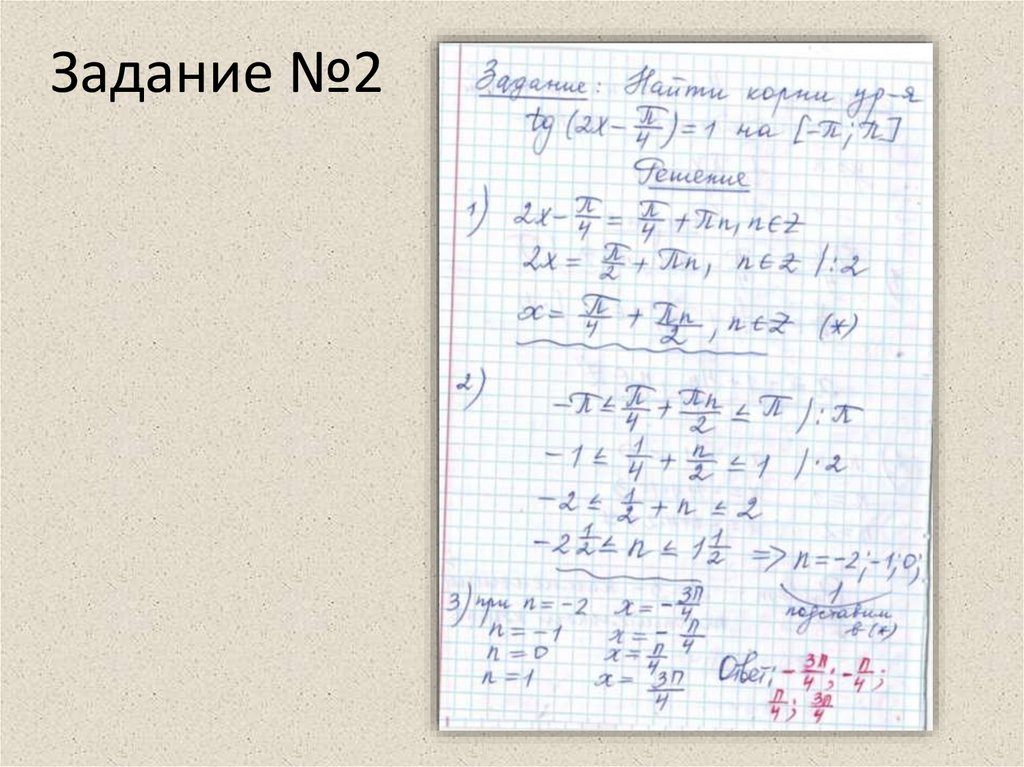 Задание №2
Задание: Найти корни ур-я
tg (2x - π/4) = 1 на [-π; π]
Решение
1) 2x - π/4 = π/4 + πn, n ∈ Z
2x = π/2 + πn, n ∈ Z /:2
x = π/4 + πn/2, n ∈ Z (*)
2) -π ≤ π/4 + πn/2 ≤ π /:π
-1 ≤ 1/4 + n/2 ≤ 1 /·2
-2 ≤ 1/2 + n ≤ 2
-2 1/2 ≤ n ≤ 1 1/2 => n = -2; -1; 0;
1
подставим
в (*)
3) при n = -2 x = -3π/4
n = -1 x = -π/4
n = 0 x = π/4
n = 1 x = 3π/4
Ответ: -3π/4; -π/4;
π/4; 3π/4